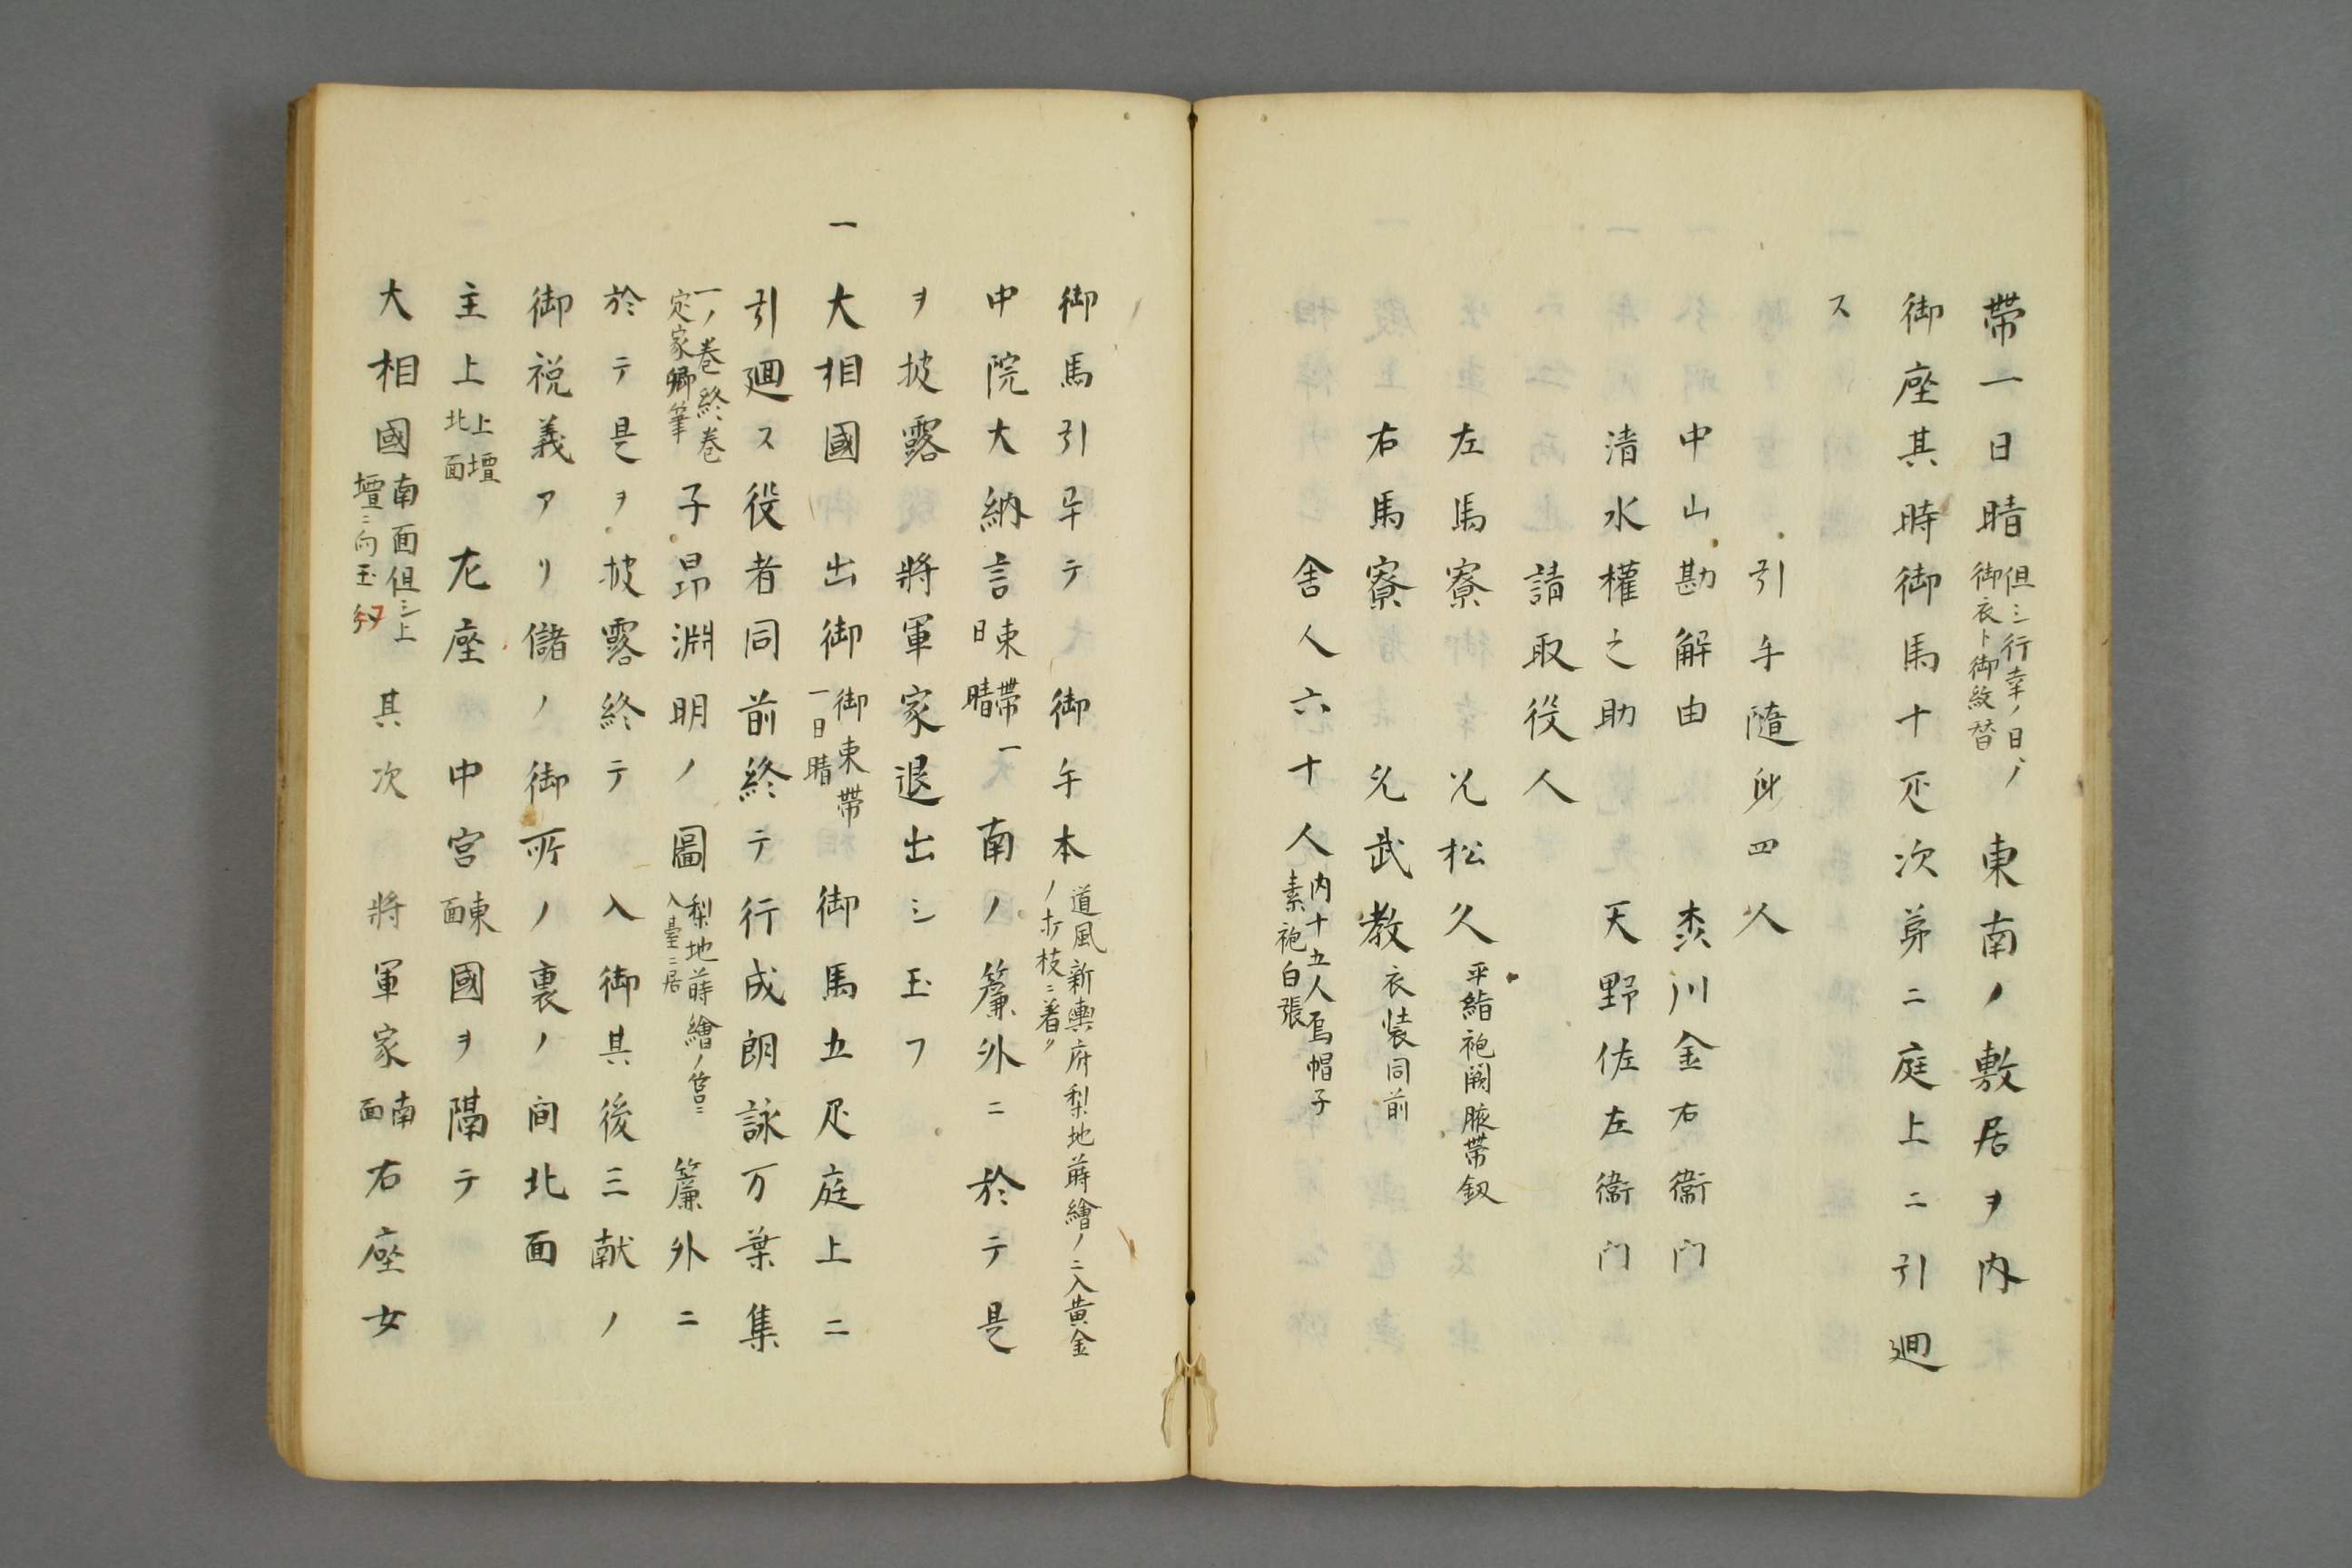 帶一日晴但シ行幸ノ日ノ御衣ト御紋替東南ノ敷居ヲ内
御座其時御馬十疋次第ニ庭上ニ引廻
ス
引手隨身四人
中山勘解由 柰川金右衞门
清水權之助 天野佐左衞门
請取役人
左馬寮 兄松久平絹袍闕腋帶釼
右馬寮 兄武教衣裝同前
舎人六十人内十五人烏帽子素袍白張
御馬引畢テ 御手本道風新輿府梨地蒔繪ノニ入黄金ノ打枝ニ着ク
中院大納言束帶一日晴南ノ簾外ニ於テ是
ヲ披露 將軍家退出シ玉フ
一 大相國 出御御束帶一日晴 御馬五疋庭上ニ
引廻ス役者同前終テ行成朗詠万葉集
一ノ巻終巻定家卿筆子昂淵明ノ圖梨地蒔繪ノ筥ニ入臺ニ居 簾外ニ
於テ是ヲ披露終テ 入御其後三献ノ
御祝義アリ儲ノ御所ノ裏ノ间北面
主上上壇北面 左座 中宮東面國ヲ隔テ
大相國南面但シ上壇ニ向玉 其次 將軍家南面右座女